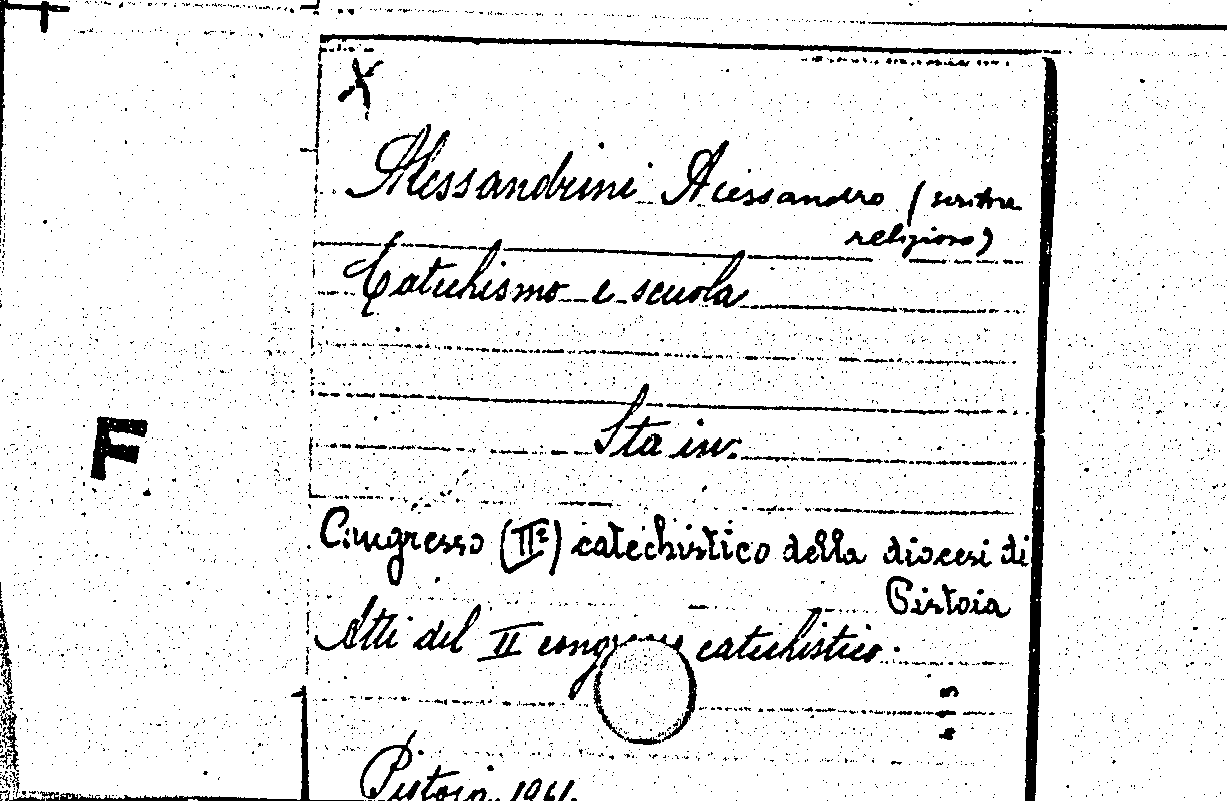 X
Alessandrini Alessandro (scrittore
religioso)
Catechismo e scuola
F
Sta in:
Congresso (IIº) catechistico della diocesi di
Pistoia
Atti del II congresso catechistico.
Pistoia, 1961.